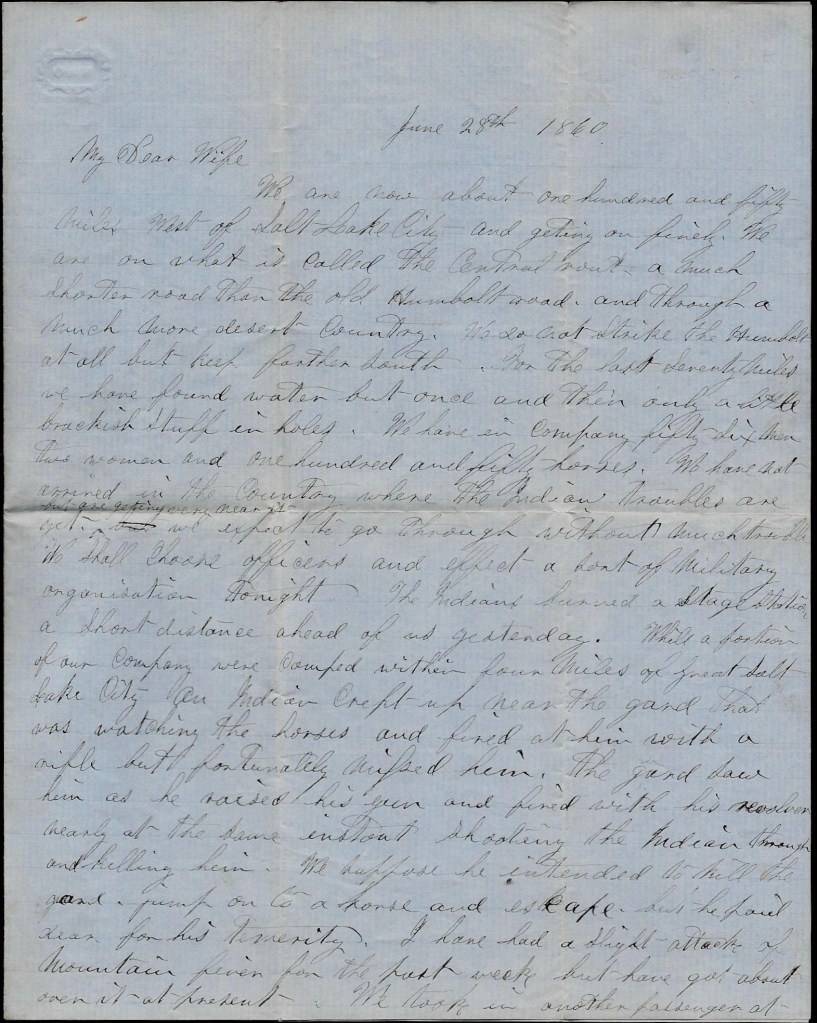 June 28th 1860
My Dear Wife
We are now about one hundred and fifty
miles West of Salt Lake City and geting on finely. We
are on what is called the Central rout a much
shorter road than the old Humbolt road. and through a
much more desert Country. We do not strike the Humbolt
at all but keep farther south. For the last Seventy miles
we have found water but once and then only a little
brackish stuff in holes. We have in Company fifty six men
two women and one hundred and fifty horses. We have not
arrived in the Country where the Indian troubles are
but are geting very near it
yet we expect to go through without much trouble
We shall Choose officers and effect a sort of Military
organisation tonight The Indians burned a Stage Station
a short distance ahead of us yesterday. While a portion
of our Company were Camped within four miles of Great Salt
Lake City an Indian Crept up near the gard that
was watching the horses and fired at him with a
rifle but fortunately missed him. The gard saw
him as he raised his gun and fired with his revolver
nearly at the same instant shooting the Indian through
and killing him. We suppose he intended to kill the
gard. jump on to a horse and escape. but he paid
dear for his timerity. I have had a slight attack of
Mountain fever for the past week but have got about
over it at present. We took in another passenger at